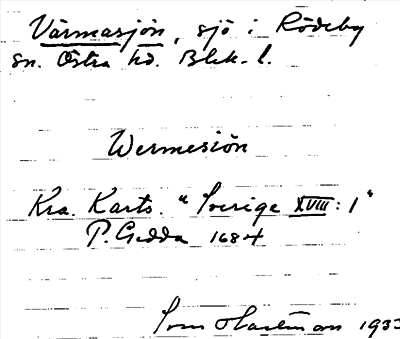 Värmasjön, sjö i Rödeby
sn. Östra hd. Blek. l.
Wermesiön
Kra. Karts. "Sverige XVIII: 1"
P. Gedda 1684